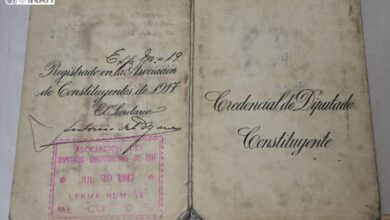 INAH
Exp. No. 19.
Registrado en la Asociación
de Constituyentes de 1917
El Secretario
ASOCIACION DE
DIPUTADOS CONSTITUYENTES DE 1917
1947
LERMA NUM. 35
MEXICO
Credencial de Diputado
Constituyente